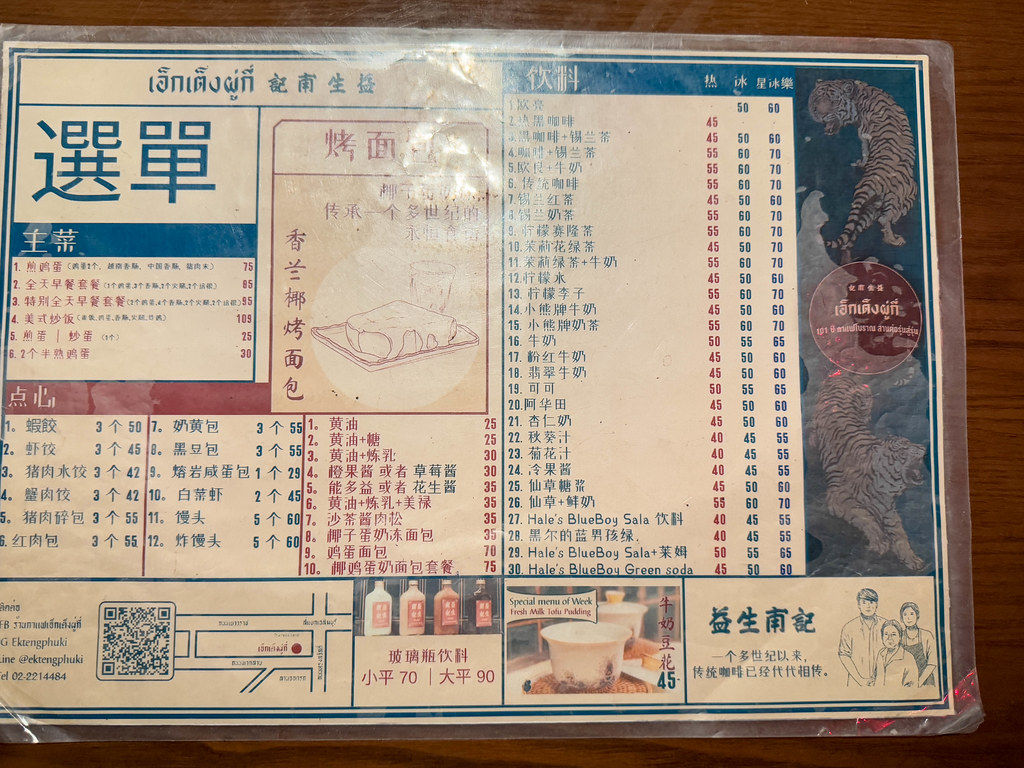 เอ็กเต็งผู่กี่ 記甫生益
選單
主菜
1. 煎鸡蛋 (鸡蛋2个, 越南香肠, 中国香肠, 猪肉末) 75
2. 全天早餐套餐 85
3. 特别全天早餐套餐 95
4. 美式炒饭 109
5. 煎蛋 | 炒蛋 (1个) 25
6. 2个半熟鸡蛋 30
烤面
传承一个多世纪的
香兰椰烤面包
点心
1。 蝦餃 3 个 50
2。 虾饺 3 个 45
3。 猪肉水饺 3 个 42
4。 蟹肉饺 3 个 42
5。 猪肉碎包 3 个 55
6. 红肉包 3 个 55
7。 奶黄包 3 个 55
8。 黑豆包 3 个 55
9。 熔岩咸蛋包 1 个 29
10。 白菜虾 2 个 45
11。 馒头 5 个 60
12。 炸馒头 5 个 60
1。 黄油 25
2。 黄油+糖 25
3。 黄油+炼乳 30
4。 橙果酱 或者 草莓酱 30
5。 能多益 或者 花生酱 35
6。 黄油+炼乳+美禄 35
7。 沙茶酱肉松 35
8。 椰子蛋奶冻面包 35
9。 鸡蛋面包 70
10。 椰鸡蛋奶面包套餐。 75
饮料 热 冰 星冰樂
1.欧亮 50 60
2.热黑咖啡 45
3.黑咖啡+锡兰茶 45 50 60
4.咖啡+锡兰茶 55 60 70
5.欧良+牛奶 55 60 70
6. 传统咖啡 55 60 70
7. 锡兰红茶 45 50 60
8.锡兰奶茶 55 60 70
9. 柠檬赛隆茶 55 60 70
10. 茉莉花绿茶 45 50 60
11.茉莉绿茶+牛奶 55 60 70
12.柠檬水 45 50 60
13. 柠檬李子 55 60 70
14.小熊牌牛奶 45 50 60
15. 小熊牌奶茶 55 60 70
16. 牛奶 50 55 65
17. 粉红牛奶 45 50 60
18. 翡翠牛奶 45 50 60
19. 可可 50 55 65
20.阿华田 45 50 60
21. 杏仁奶 45 50 60
22. 秋葵汁 40 45 55
23. 菊花汁 40 45 55
24. 冷果酱 40 45 55
25. 仙草糖浆 45 50 60
26. 仙草+鲜奶 55 60 70
27. Hale's BlueBoy Sala 饮料 40 45 55
28. 黑尔的蓝男孩绿. 40 45 55
29. Hale's BlueBoy Sala+莱姆 50 55 65
30. Hale's BlueBoy Green soda 45 50 60
記甫生益
เอ็กเต็งผู่กี่
101 ปี กาแฟโบราณ ล้านต่อรุ่นสู่รุ่น
ติดต่อ
FB ร้านกาแฟเอ็กเต็งผู่กี่
IG Ektengphuki
Line @ektengphuki
Tel 02-2214484
เอ็กเต็งผู่กี่
玻璃瓶饮料
小平 70 | 大平 90
Special menu of Week
Fresh Milk Tofu Pudding
牛奶豆花
45.-
益生甫記
一个多世纪以来,
传统咖啡已经代代相传。